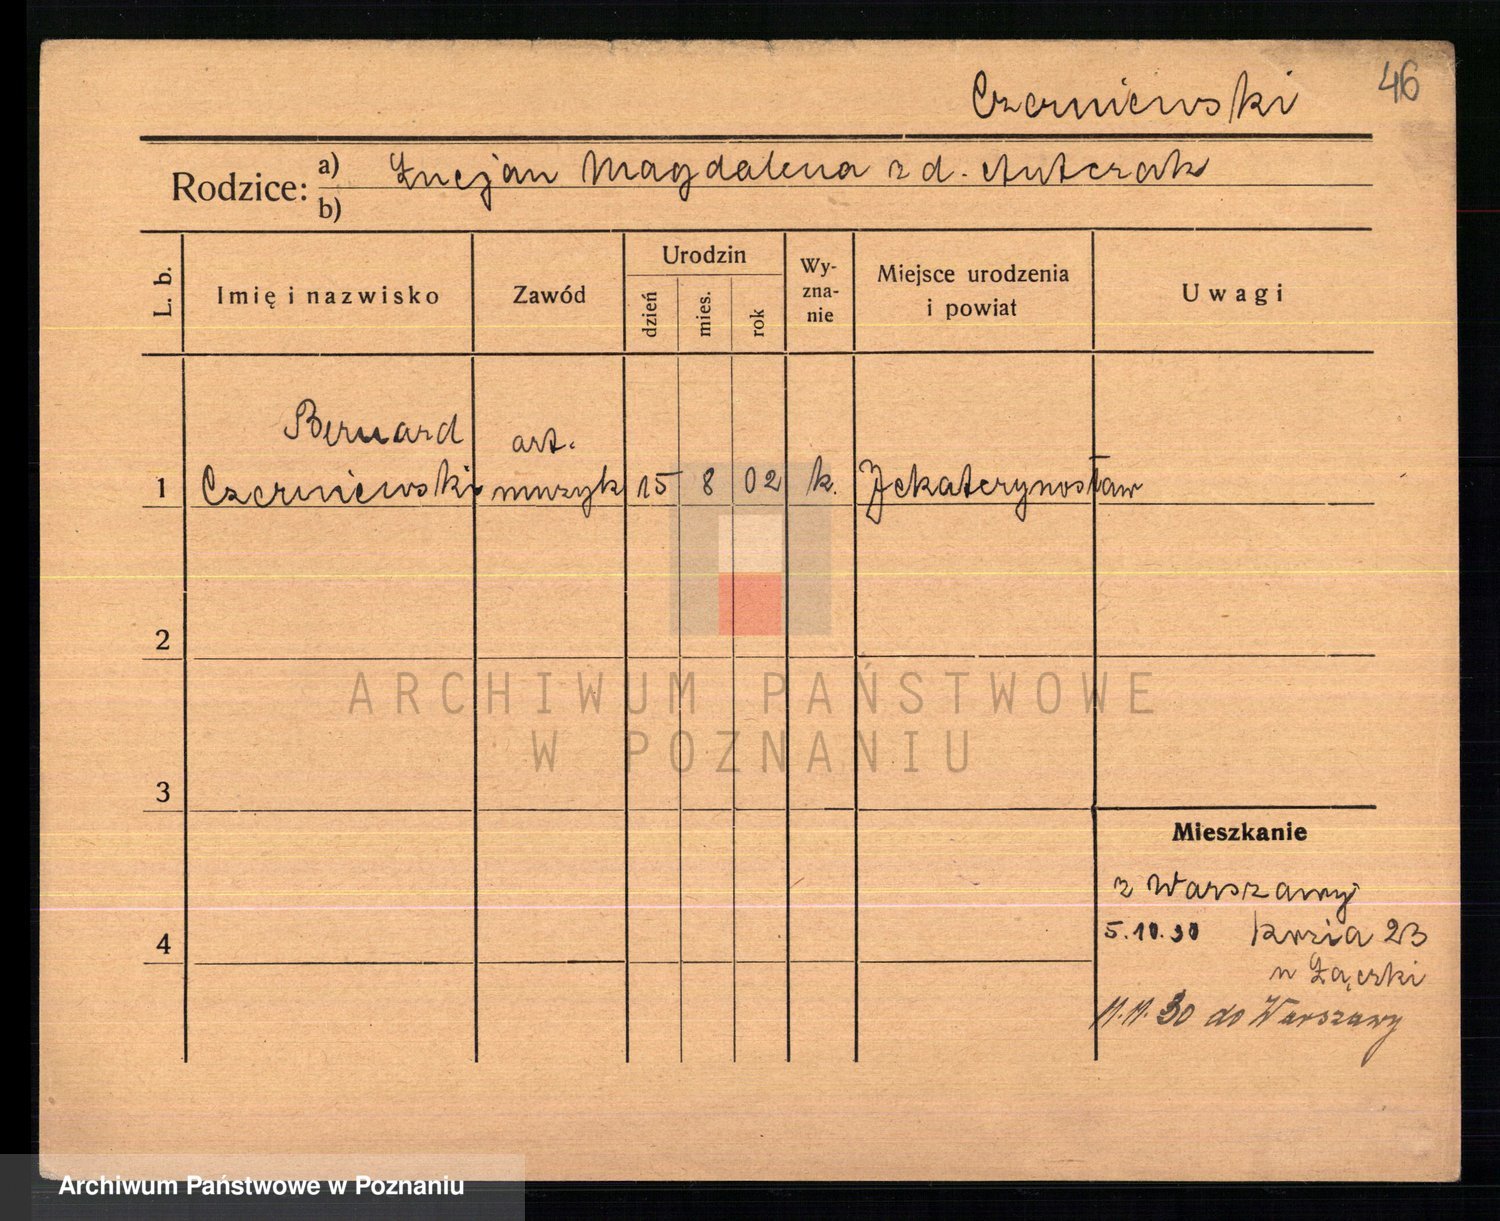 46
Czerniewski
Rodzice: a) Łucjan Magdalena z d. Antczak
b)
L. b.
Imię i nazwisko
Zawód
Urodzin
dzień
mies.
rok
Wy-
zna-
nie
Miejsce urodzenia
i powiat
Uwagi
Bernard art.
1 Czerniewski muzyk 15 8 02 k. Jekaterynosław
2
3
4
Mieszkanie
z Warszawy
5.10.30 23
u
11.11.30 do Warszawy
ARCHIWUM PAŃSTWOWE
W POZNANIU
Archiwum Państwowe w Poznaniu